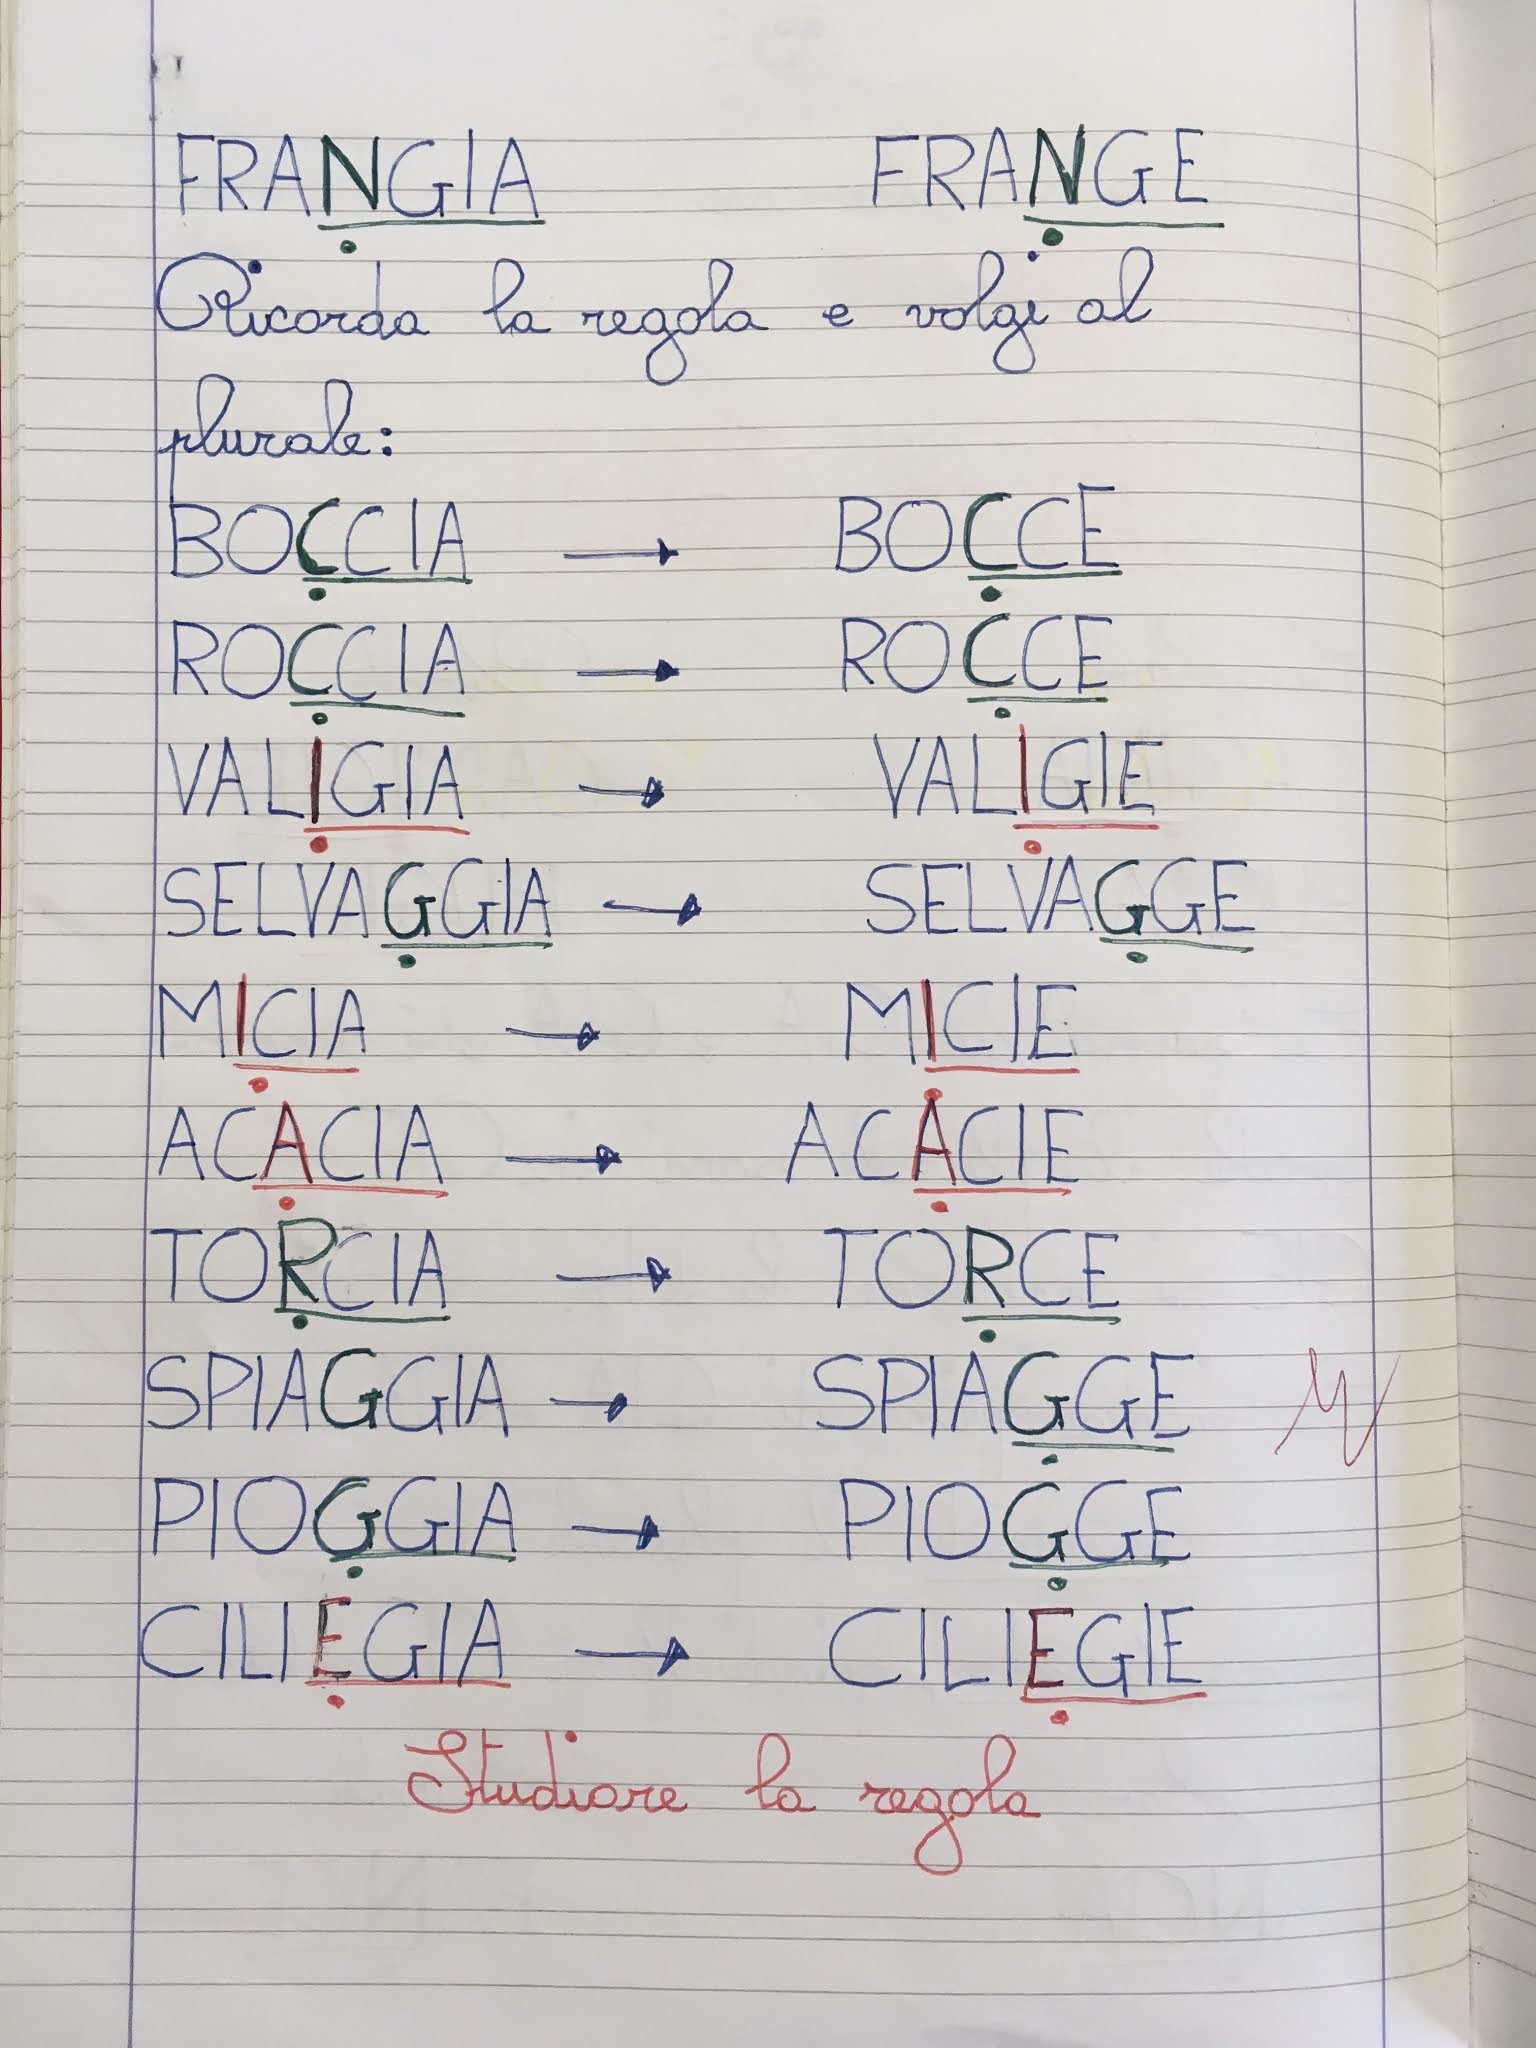 FRANGIA FRANGE
Ricorda la regola e volgi al
plurale:
BOCCIA → BOCCE
ROCCIA → ROCCE
VALIGIA → VALIGIE
SELVAGGIA → SELVAGGE
MICIA → MICIE
ACACIA → ACACIE
TORCIA → TORCE
SPIAGGIA → SPIAGGE
PIOGGIA → PIOGGE
CILIEGIA → CILIEGIE
Studiare la regola